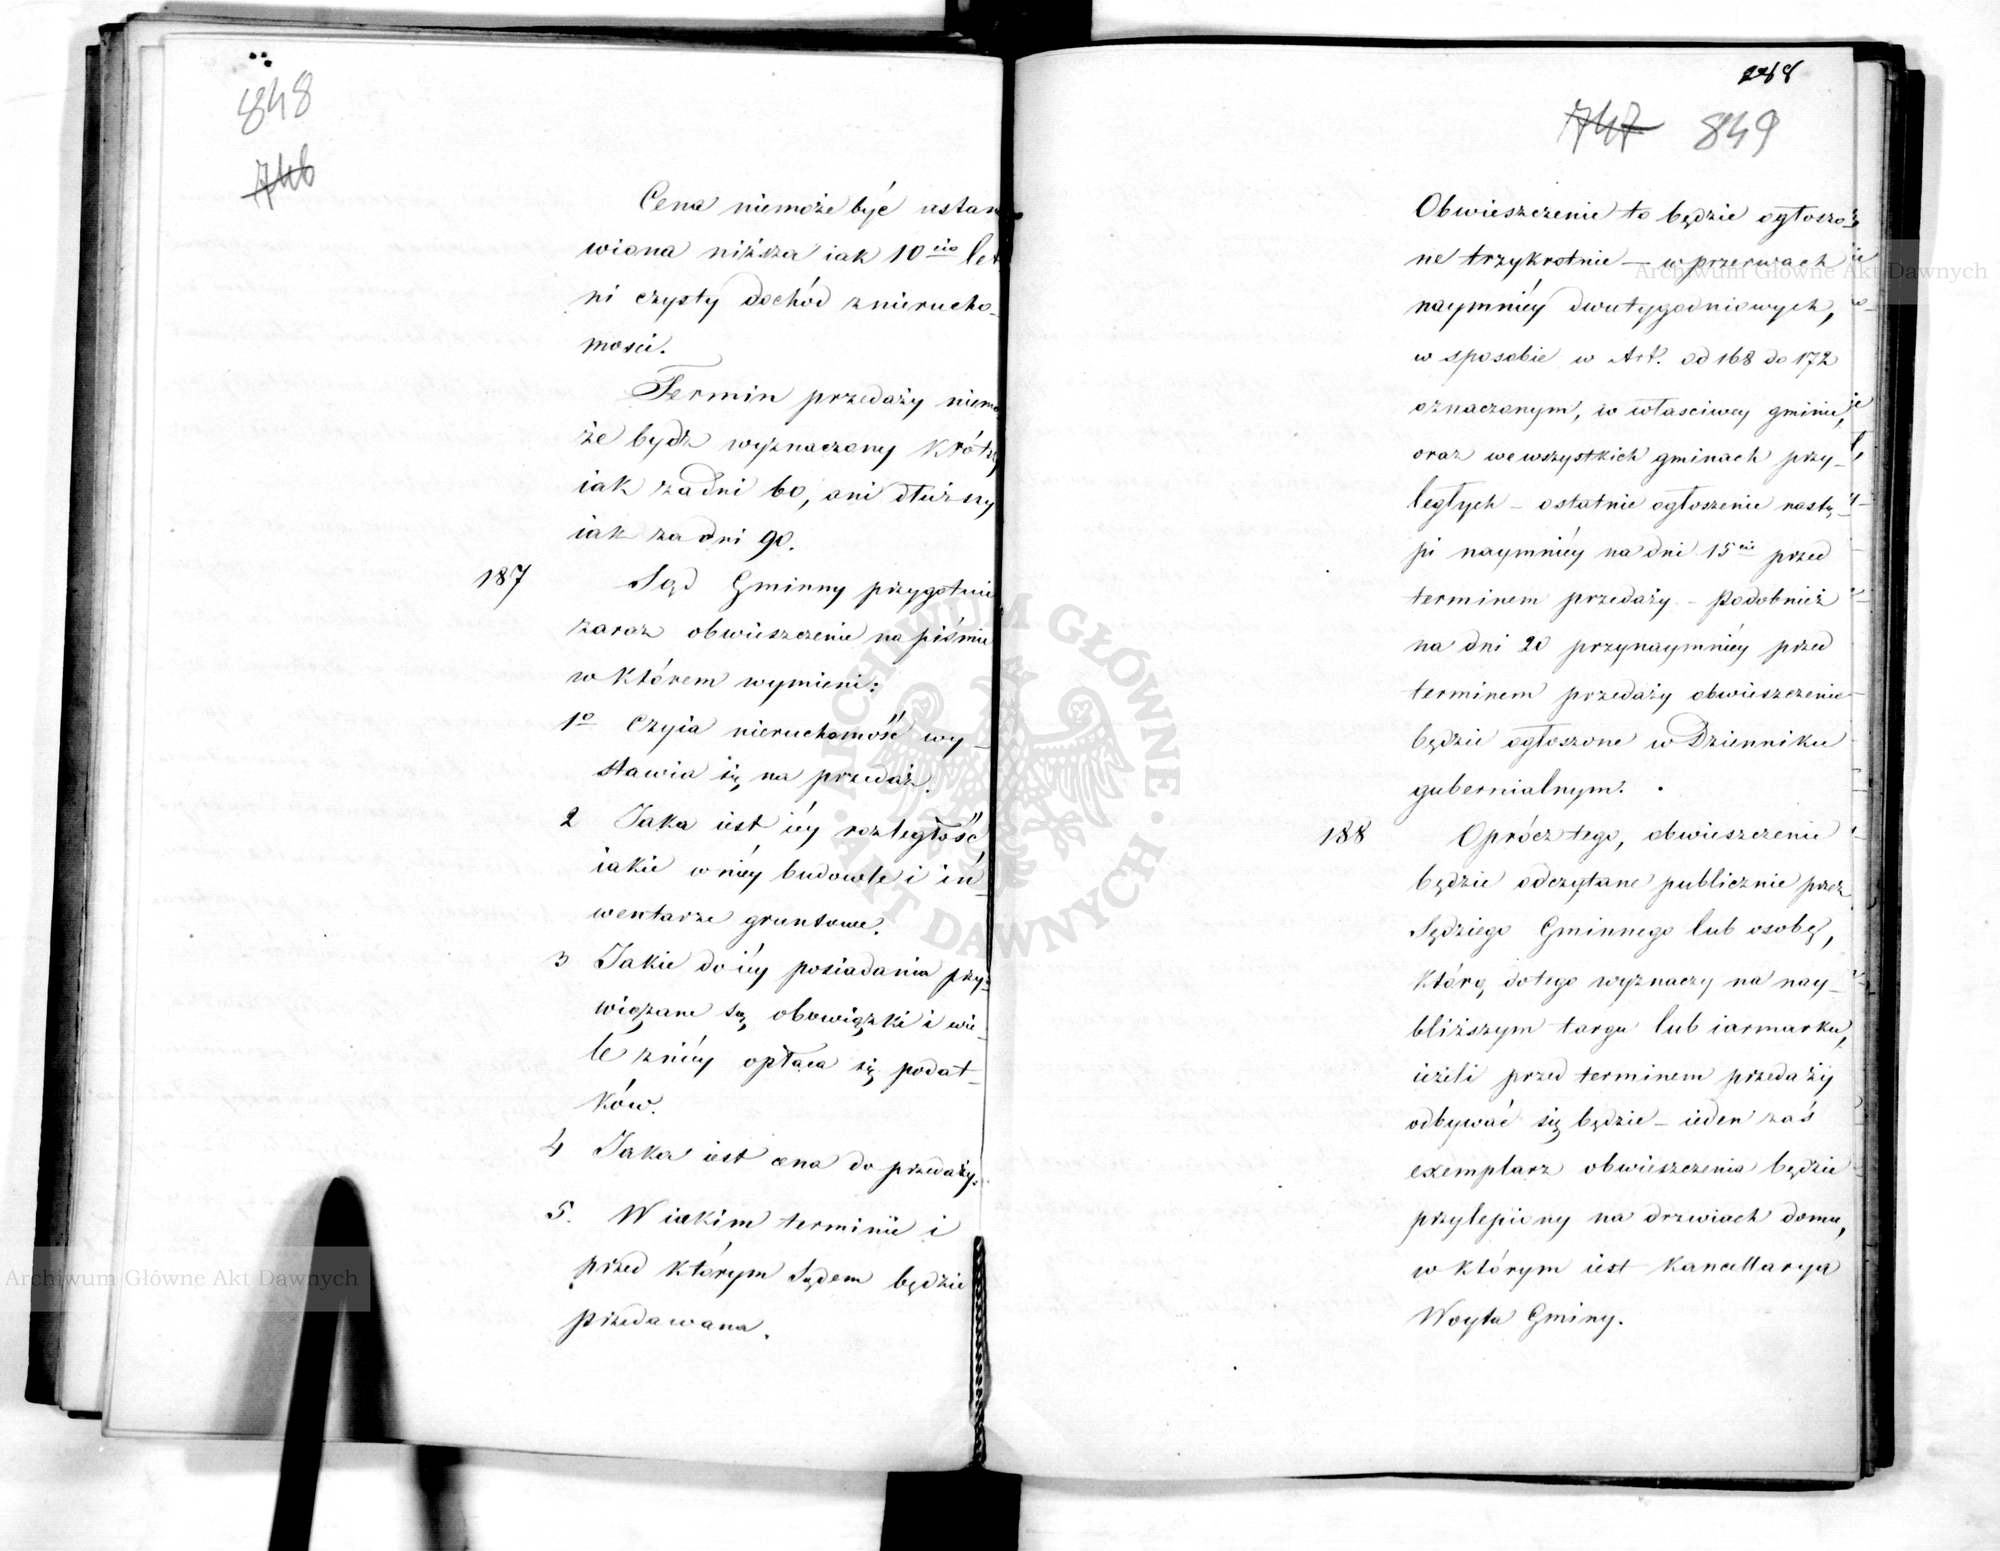 848
746
Cena niemoże być ustan
wiona niższa iak 10cio let
ni czysty dochód z nierucho-
mości.
Termin przedaży niemo
że bydź wyznaczony krótszy
iak za dni 60, ani dłuższy
iak za dni 90.
187 Sąd Gminny przygotuie
zaraz obwieszczenie na piśmie
w którem wymieni:
1o Czyia nieruchomość wy-
stawia się na przedaż.
2 Jaka iest iéy rozległość,
iakie w niéy budowle i in-
wentarze gruntowe.
3 Jakie do iéy posiadania przy-
wiązane są obowiązki i wie-
le z niéy opłaca się podat-
ków.
4 Jaka iest cena do przedaży.
5. W iakim terminie i
przed którym Sądem będzie
przedawana.
248
747 849
Obwieszczenie to będzie ogłoszo-
ne trzykrotnie – w przerwach
naymniéy dwutygodniowych,
w sposobie w Art. od 168 do 172
oznaczonym, w właściwey gminie,
oraz we wszystkich gminach przy-
ległych – ostatnie ogłoszenie nastą-
pi naymniéy na dni 15cie przed
terminem przedaży. – Podobnież
na dni 20 przynaymniéy przed
terminem przedaży obwieszczenie
będzie ogłoszone w Dzienniku
gubernialnym.
188 Oprócz tego, obwieszczenie
będzie odczytane publicznie przez
Sędziego Gminnego lub osobę,
którą do tego wyznaczy na nay-
bliższym targu lub iarmarku,
ieżeli przed terminem przedaży
odbywać się będzie – ieden zaś
exemplarz obwieszczenia będzie
przylepiony na drzwiach domu,
w którym iest Kancellarya
Woyta Gminy.
Archiwum Główne Akt Dawnych
Archiwum Główne Akt Dawnych
ARCHIWUM GŁÓWNE · AKT DAWNYCH ·